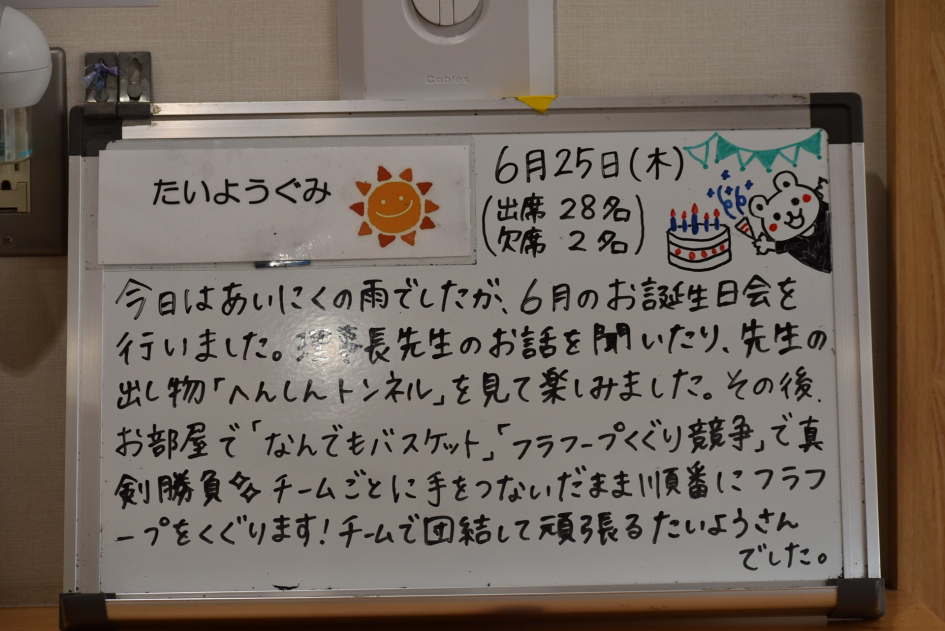 Cablex
たいようぐみ
6月25日(木)
(出席 28名
欠席 2名)
今日はあいにくの雨でしたが、6月のお誕生日会を
行いました。理事長先生のお話を聞いたり、先生の
出し物「へんしんトンネル」を見て楽しみました。その後、
お部屋で「なんでもバスケット」「フラフープくぐり競争」で真
剣勝負 チームごとに手をつないだまま順番にフラフ
ープをくぐります!チームで団結して頑張るたいようさん
でした。